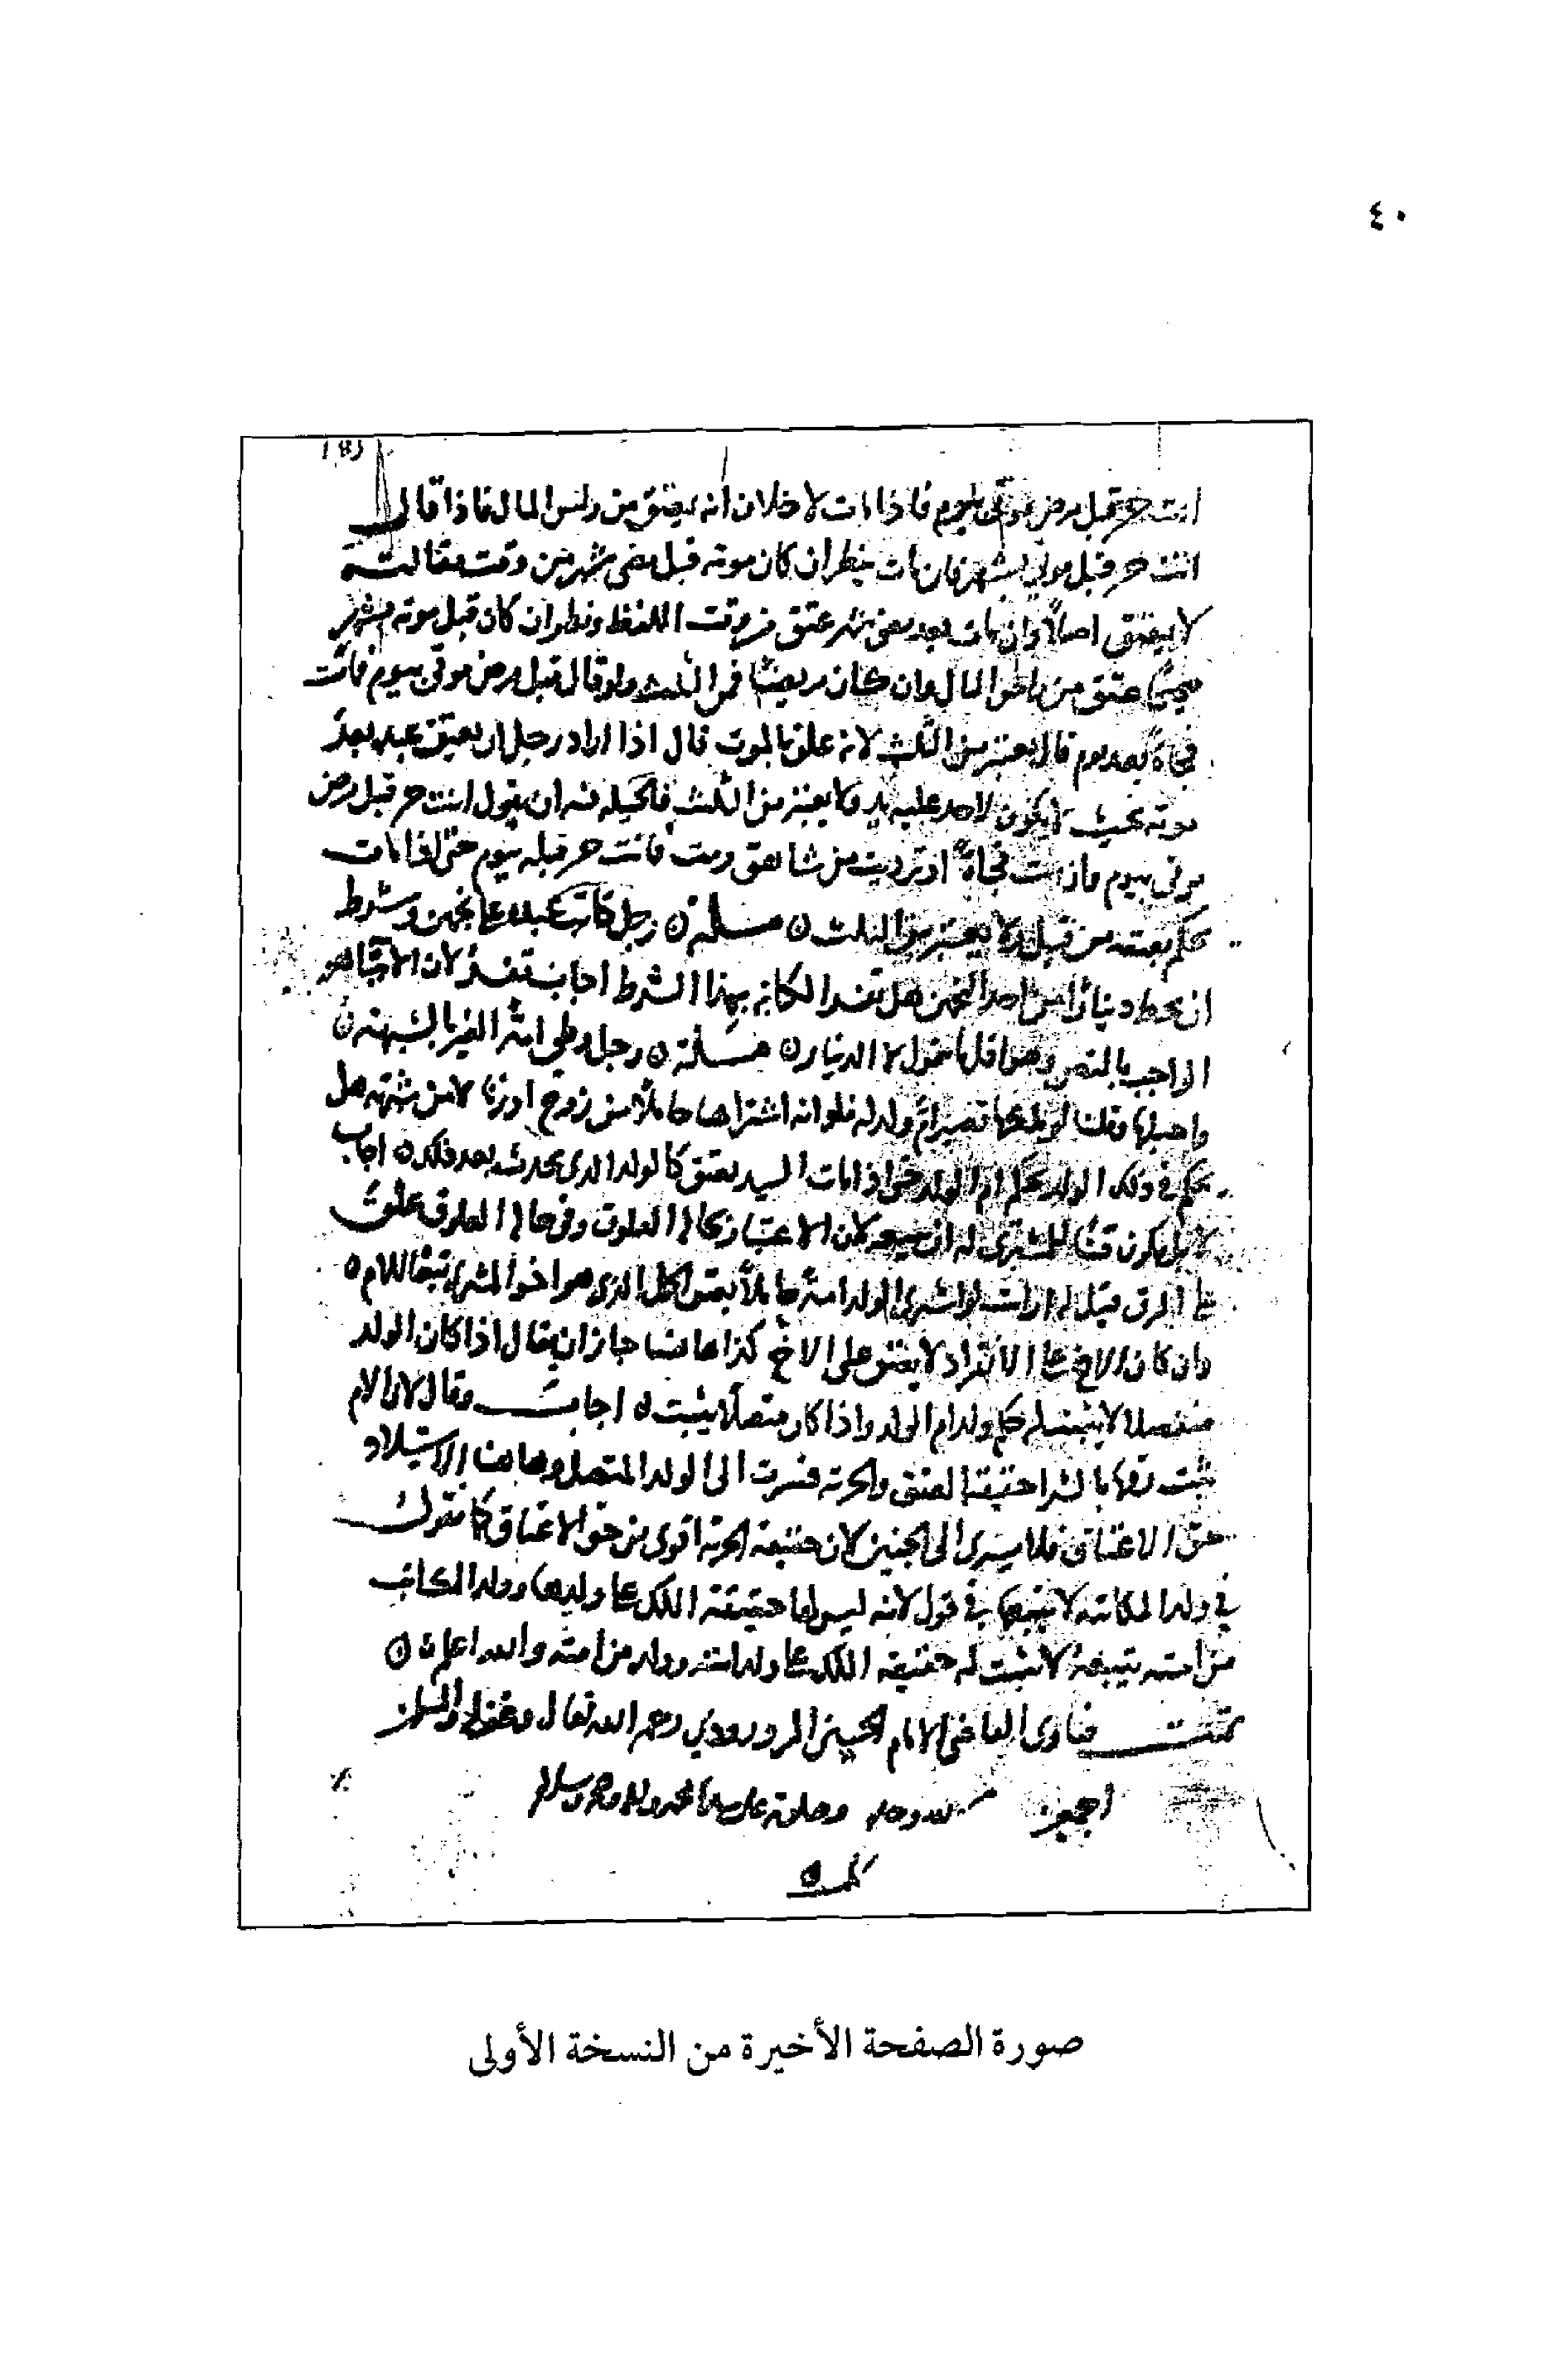 ٤٠
انت حر قبل مرض موتي بيوم فاذا مات لا خلاف انه يعتق من راس المال فاذا قال
انت حر قبل موتي بشهر فان مات ينظر ان كان موته قبل مضي شهر من وقت مقالته
لا يعتق اصلا وان مات بعد مضي شهر عتق من وقت اللفظ ونظر ان كان قبل موته بشهر
صحيحا عتق من راس المال وان كان مريضا فمن الثلث ولو قال قبل مرض موتي بيوم فمات
فجاة بعد يوم قال يعتبر من الثلث لانه علق بالموت قال اذا اراد رجل ان يعتق عبده بعد
موته بحيث لا يكون لاحد عليه يد ولا يعتبر من الثلث فالحيلة فيه ان يقول انت حر قبل مرض
موتي بيوم فان مت فجاة او ترديت من شاهق ومت فانت حر قبله بيوم حتى اذا مات
حكم بعتقه من قبل ولا يعتبر من الثلث مسلة رجل كاتب عبده على نجمين وشرط
ان يحط دينارا من احد النجمين هل تنفذ الكتابة بهذا الشرط اجاب تنفذ لان الايتا هو
الواجب بالنص وهو اقل ما يتمول لا الدينار مسلة رجل وطي امة الغير بالشبهة
واحبلها وقلنا لو ملكها تصير ام ولد له فلو انه اشتراها حاملا من زوج او زنا لا من شبهته هل
يحكم في ذلك الولد بحكم ام الولد حتى اذا مات السيد يعتق كالولد الذي يحدث بعد ذلك اجاب
لا بل يكون قنا للمشتري له ان يبيعه لان الاعتبار بحالة العلوق وفي حالة العلوق علقت
على الرق قيل له ارايت لو اشترى الولد امه حاملا يعتق الحمل الذي هو اخو المشتري تبعا للام
وان كان الاخ على الانفراد لا يعتق على الاخ كذا هاهنا جاز ان يقال اذا كان الولد
منفصلا لا يثبت له حكم ولد ام الولد واذا كان متصلا يثبت اجاب وقال لان الام
ثبت لها بالشرا حقيقة العتق والحرية فسرت الى الولد المتصل وهاهنا الاستيلاد
حق الاعتاق فلا يسري الى الجنين لان حقيقة الحرية اقوى من حق الاعتاق كما نقول
في ولد المكاتبة لا يتبعها في قول لانه ليس لها حقيقة الملك على ولدها وولد المكاتب
من امته يتبعه لانه ثبت له حقيقة الملك على ولد امته وولده من امته والله اعلم
تمت فتاوى القاضي الامام الحسين المروروذي رحمه الله تعالى وغفر له
اجمعين وحده وصلاته على سيدنا محمد واله وصحبه وسلامه
صورة الصفحة الأخيرة من النسخة الأولى